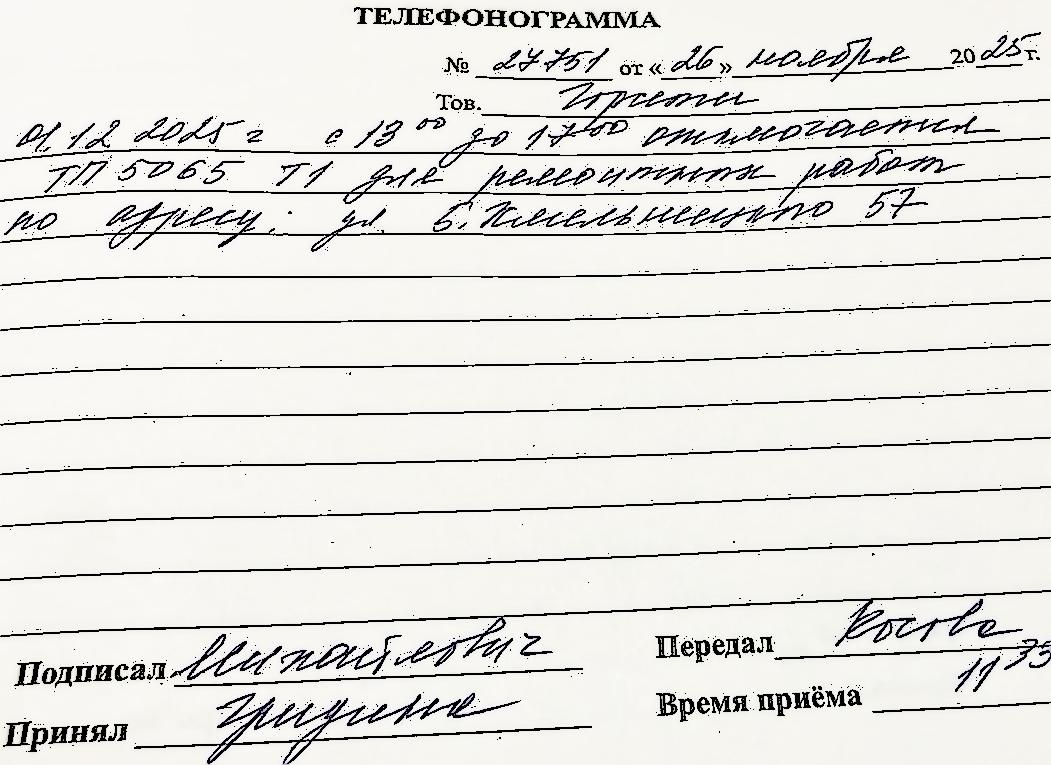 ТЕЛЕФОНОГРАММА
№ 27751 от «26» ноября 2025 г.
Тов. Горсети
01.12 2025 г с 13 00 до 17 00 отключается
ТП 5065 Т1 для ремонтных работ
по адресу: ул. Б. Хмельницкого 57
Подписал Михайлович
Передал
Время приёма 11 35
Принял Гридина